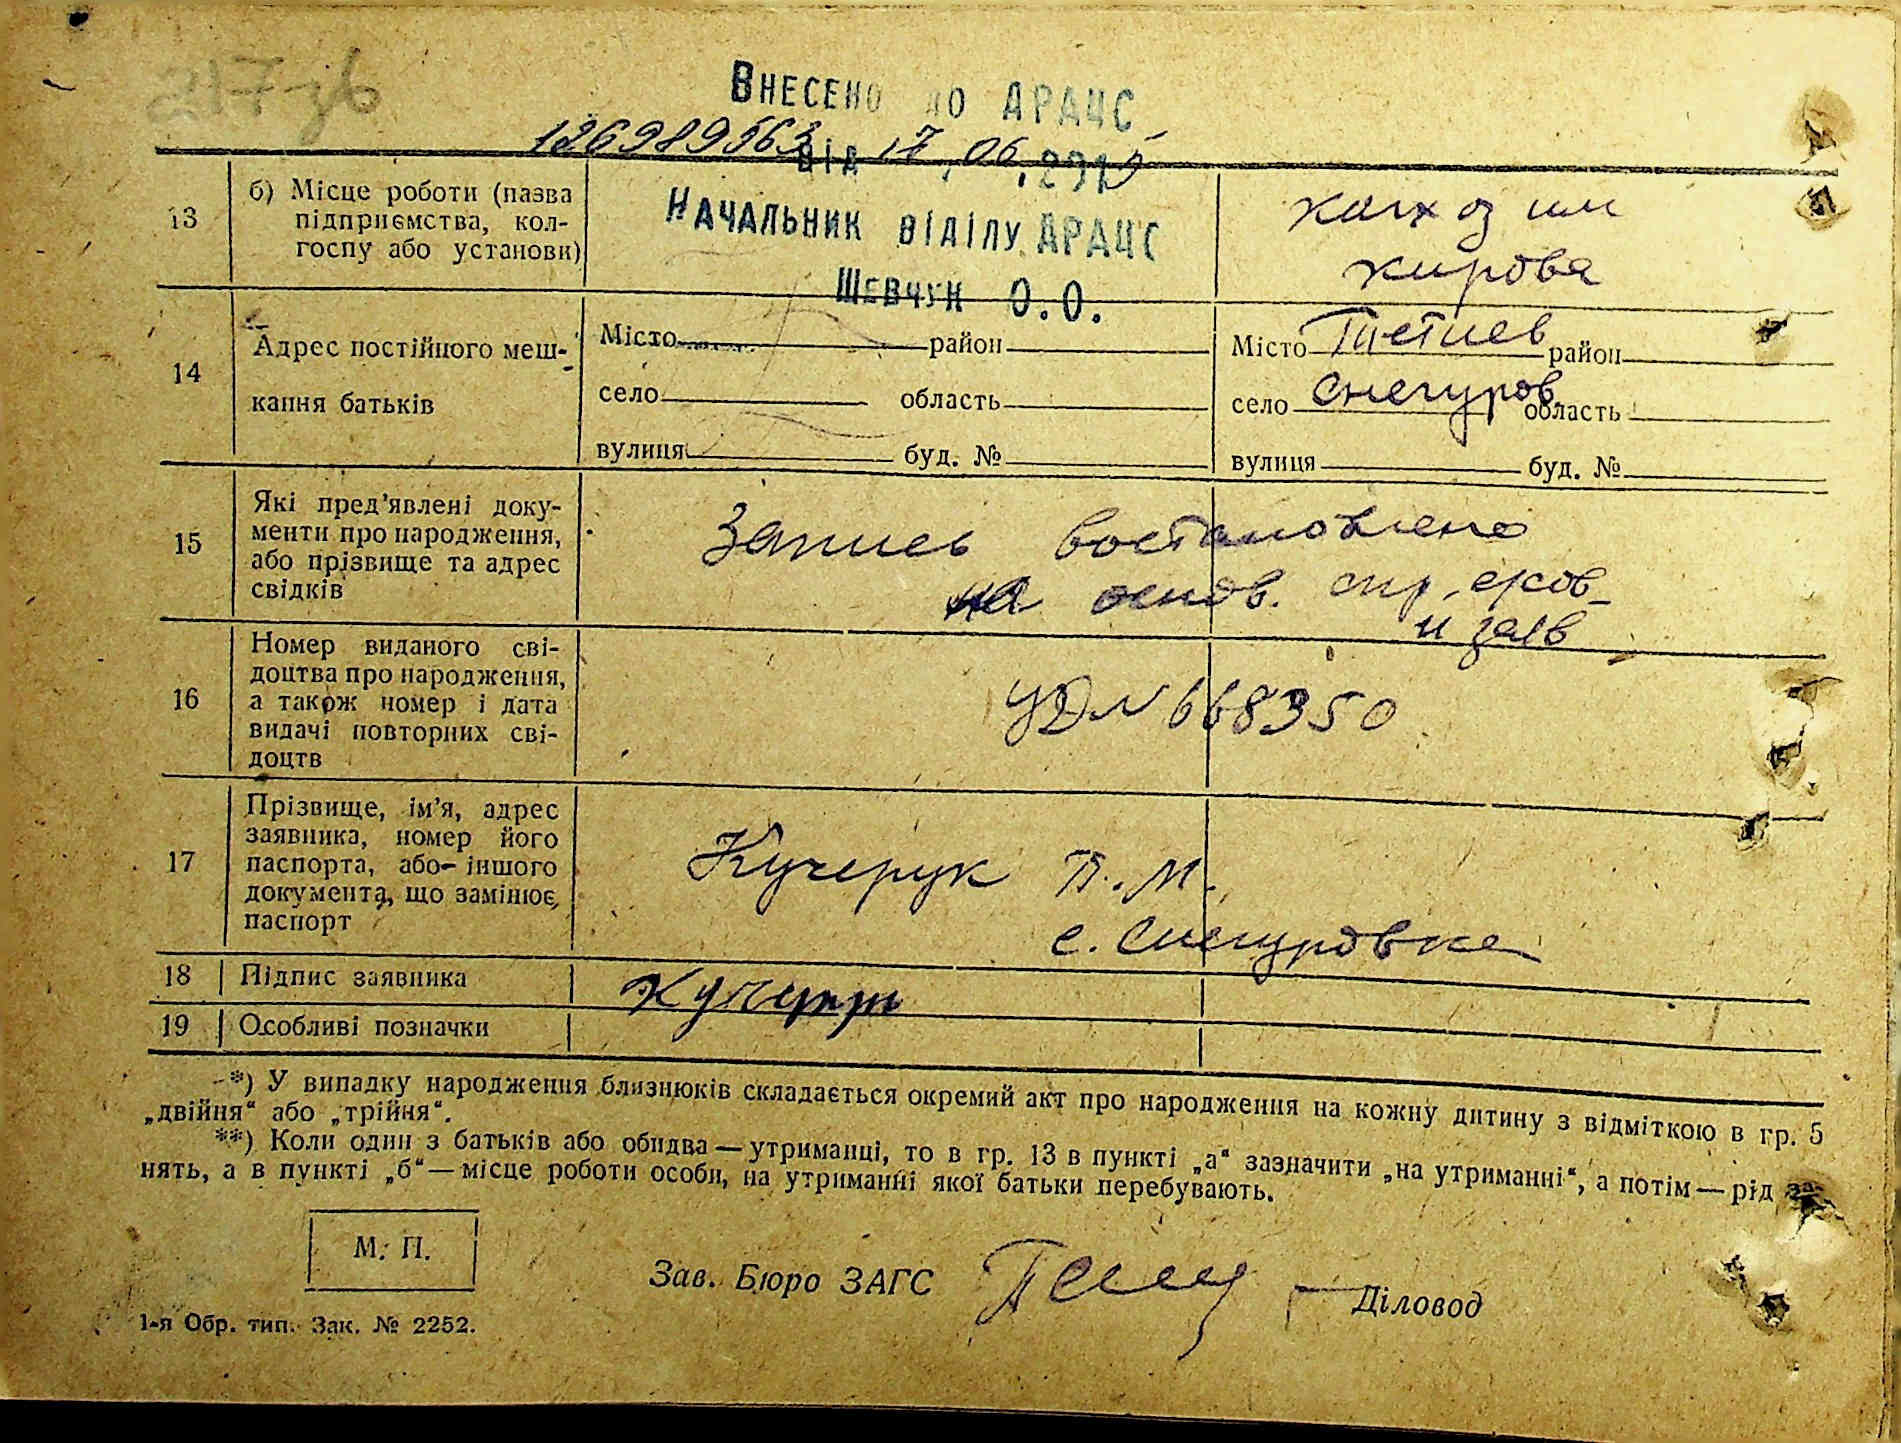 217 зв
ВНЕСЕНО ДО ДРАЦС
126989563 ВІД 17.06.2015
13
б) Місце роботи (назва
підприємства, кол-
госпу або установи)
НАЧАЛЬНИК ВІДІЛУ ДРАЦС
ШЕВЧУК О.О.
колхоз им
кирова
14
Адрес постійного меш-
кання батьків
Місто район
село область
вулиця буд. №
Місто Тетиев район
село Снегуров область
вулиця буд. №
15
Які пред'явлені доку-
менти про народження,
або прізвище та адрес
свідків
Запись востановлена
на основ. спр.
и заяв
16
Номер виданого сві-
доцтва про народження,
а також номер і дата
видачі повторних сві-
доцтв
№ 668350
17
Прізвище, ім'я, адрес
заявника, номер його
паспорта, або іншого
документа, що замінює
паспорт
Кучерук П. М.
с. Снегуровка
18 Підпис заявника
19 Особливі позначки
*) У випадку народження близнюків складається окремий акт про народження на кожну дитину з відміткою в гр. 5
„двійня“ або „трійня“.
**) Коли один з батьків або обидва — утриманці, то в гр. 13 в пункті „а“ зазначити „на утриманні“, а потім — рід за-
нять, а в пункті „б“ — місце роботи особи, на утриманні якої батьки перебувають.
М. П.
Зав. Бюро ЗАГС
Діловод
1-я Обр. тип. Зак. № 2252.